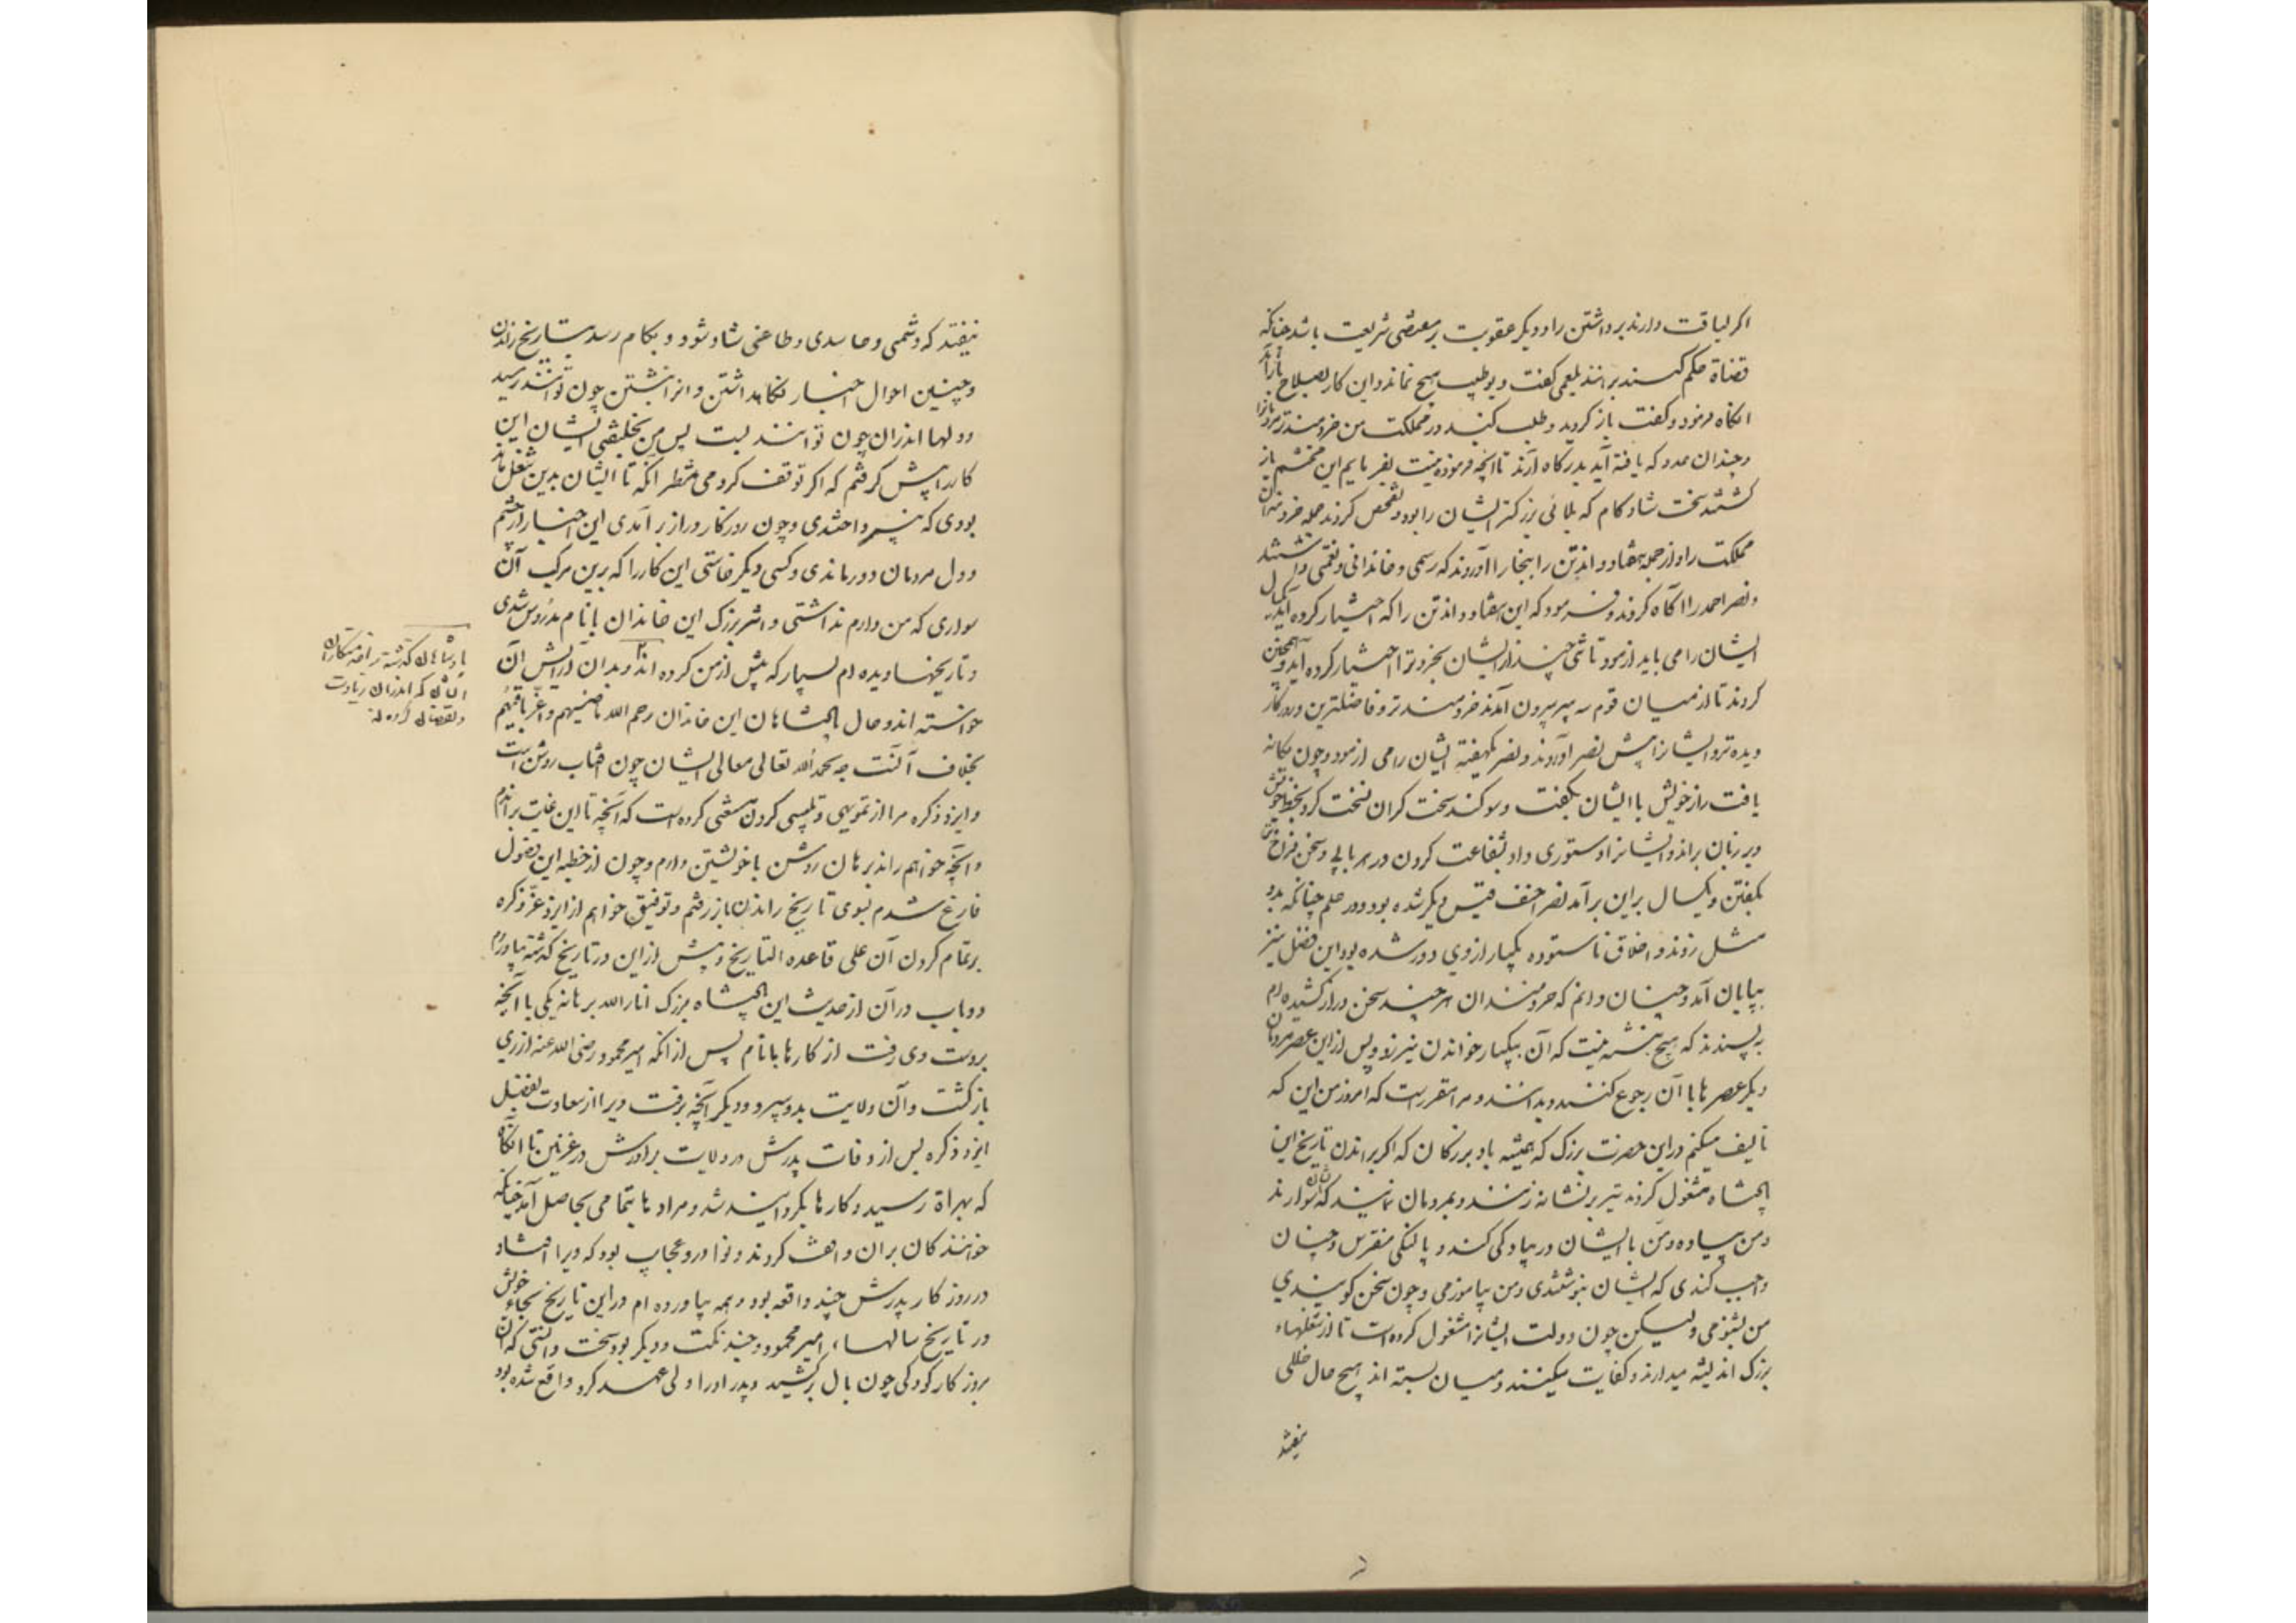 اکر لیاقت دارند برداشتن را و دیکر عقوبت بر مقتضی شریعت باشد چنانکه
قضاة حکم کنند برانند بلعمی کفت و بوطیب هیچ نماند و این کار بصلاح باز آید
انکاه فرمود و کفت باز کردید و طلب کنید در مملکت من خردمندتر مردمانرا
و چندان عدد که یافته آید بدرکاه آرند تا آنچه فرمودنیست بفرمایم این محتشم باز
کشتند سخت شادکام که بلائی بزرکتر ایشان را بود و تفحص کردند جمله خردمندان
مملکت را و از جمله هفتاد و اند تن را ببخارا آوردند که رسمی و خاندانی و نعمتی داشتند
و نصر احمد را آکاه کردند و فرمود که این هفتاد و اند تن را که اختیار کرده آید یکسال
ایشان را می باید ازمود تا تنی چند از ایشان بخردترا اختیار کرده آید و همچنین
کردند تا از میان قوم سه پیر بیرون آمدند خردمندتر و فاضلترین و روزکار
دیده تر و ایشانرا پیش نصر آوردند و نصر یکهفته ایشان را می ازمود و چون یکانه
یافت راز خویش با ایشان بکفت و سوکند سخت کران نسخت کرد بخط خویش
و بر زبان براند و ایشانرا دستوری داد بشفاعت کردن در هر بابی و سخن فراخ تر
بکفتن و یکسال براین برآمد نصر احنف قیس دیکر شده بود در حلم چنانکه بدو
مثل زدند و اخلاق ناستوده یکبار از وی دور شده بود این فصل نیز
بپایان آمد و چنان دانم که خردمندان هر چند سخن دراز کشیده ام
به پسندند که هیچ نبشته نیست که آن بیکبار خواندن نیرزد و پس از این عصر مردمان
دیکر عصرها با آن رجوع کنند و بدانند و مرا مقرر است که امروز من این که
تألیف میکنم در این حضرت بزرک که همیشه باد بزرکان که اکر براندن تاریخ این
پادشاه مشغول کردند تیر بر نشانه زنند و بمردمان نمایند که ایشان سوارند
و من پیاده و من با ایشان در پیادکی کند و با لنکی منقرس و چنان
واجب کندی که ایشان بنوشتندی و من بیاموزمی و چون سخن کویندی
من بشنومی ولیکن چون دولت ایشانرا مشغول کرده است تا از شغلهاء
بزرک اندیشه میدارند و کفایت میکنند و میان بسته اند هیچ حال خللی
نیفتد
نیفتد که دشمی و حاسدی و طاعنی شاد شود و بکام رسد بتاریخ راندن
و چنین احوال اخبار نکاهداشتن و انرا نبشتن چون توانند رسید
و دلها اندران چون توانند بست پس من بخلیفتی ایشان این
کار را پیش کرفتم که اکر توقف کردمی منتظر آنکه تا ایشان بدین شغل
بودی که نپرداختندی و چون روزکار دراز برآمدی این اخبار از چشم
و دل مردمان دور ماندی و کسی دیکر خاستی این کار را که برین مرکب آن
سواری که من دارم نداشتی و اثر بزرک این خاندان بانام مدروس شدی
و تاریخها دیده ام بسیار که پیش از من کرده اند و بدان آرایش آن
خواسته اند و حال پادشاهان این خاندان رحم الله ماضیهم و اعز باقیهم
بخلاف آنست چه بحمد الله تعالی معالی ایشان چون افتاب روشن است
و ایزد ذکره مرا از تمویهی و تلبیسی کردن مستغنی کرده است که آنچه تا این غایت براندم
و آنچه خواهم راند برهان روشن با خویشتن دارم و چون از خطبه این فصول
فارغ شدم بسوی تاریخ راندن باز رفتم و توفیق خواهم از ایزد عز ذکره
بر تمام کردن آن علی قاعده التاریخ و پیش از این در تاریخ کذشته بیاوردم
دو باب در آن از حدیث این پادشاه بزرک انار الله برهانه یکی با آنچه
بر دست وی رفت از کارها بانام پس از آنکه امیر محمود رضی الله عنه از ری
بازکشت و آن ولایت بدو سپرد و دیکر آنچه برفت ویرا از سعادت بفضل
ایزد ذکره پس از وفات پدرش در ولایت برادرش در غزنین تا انکاه
که بهراة رسید و کارها یکرویه شد و مرادها بتمامی بحاصل آمد چنانکه
خوانندکان بران واقف کردند و نوادر و عجایب بود که ویرا افتاد
در روزکار پدرش چند واقعه بود و همه بیاورده ام در این تاریخ بجاء خویش
در تاریخ سالهاء امیر محمود و چند نکت دیکر بود سخت دانستی که آن
بروزکار کودکی چون یال برکشید و پدر او را ولی عهد کرد واقع شده بود
پادشاهان کذشته را خدمتکاران
ایشان که اندران زیادت
و نقصان کرده اند